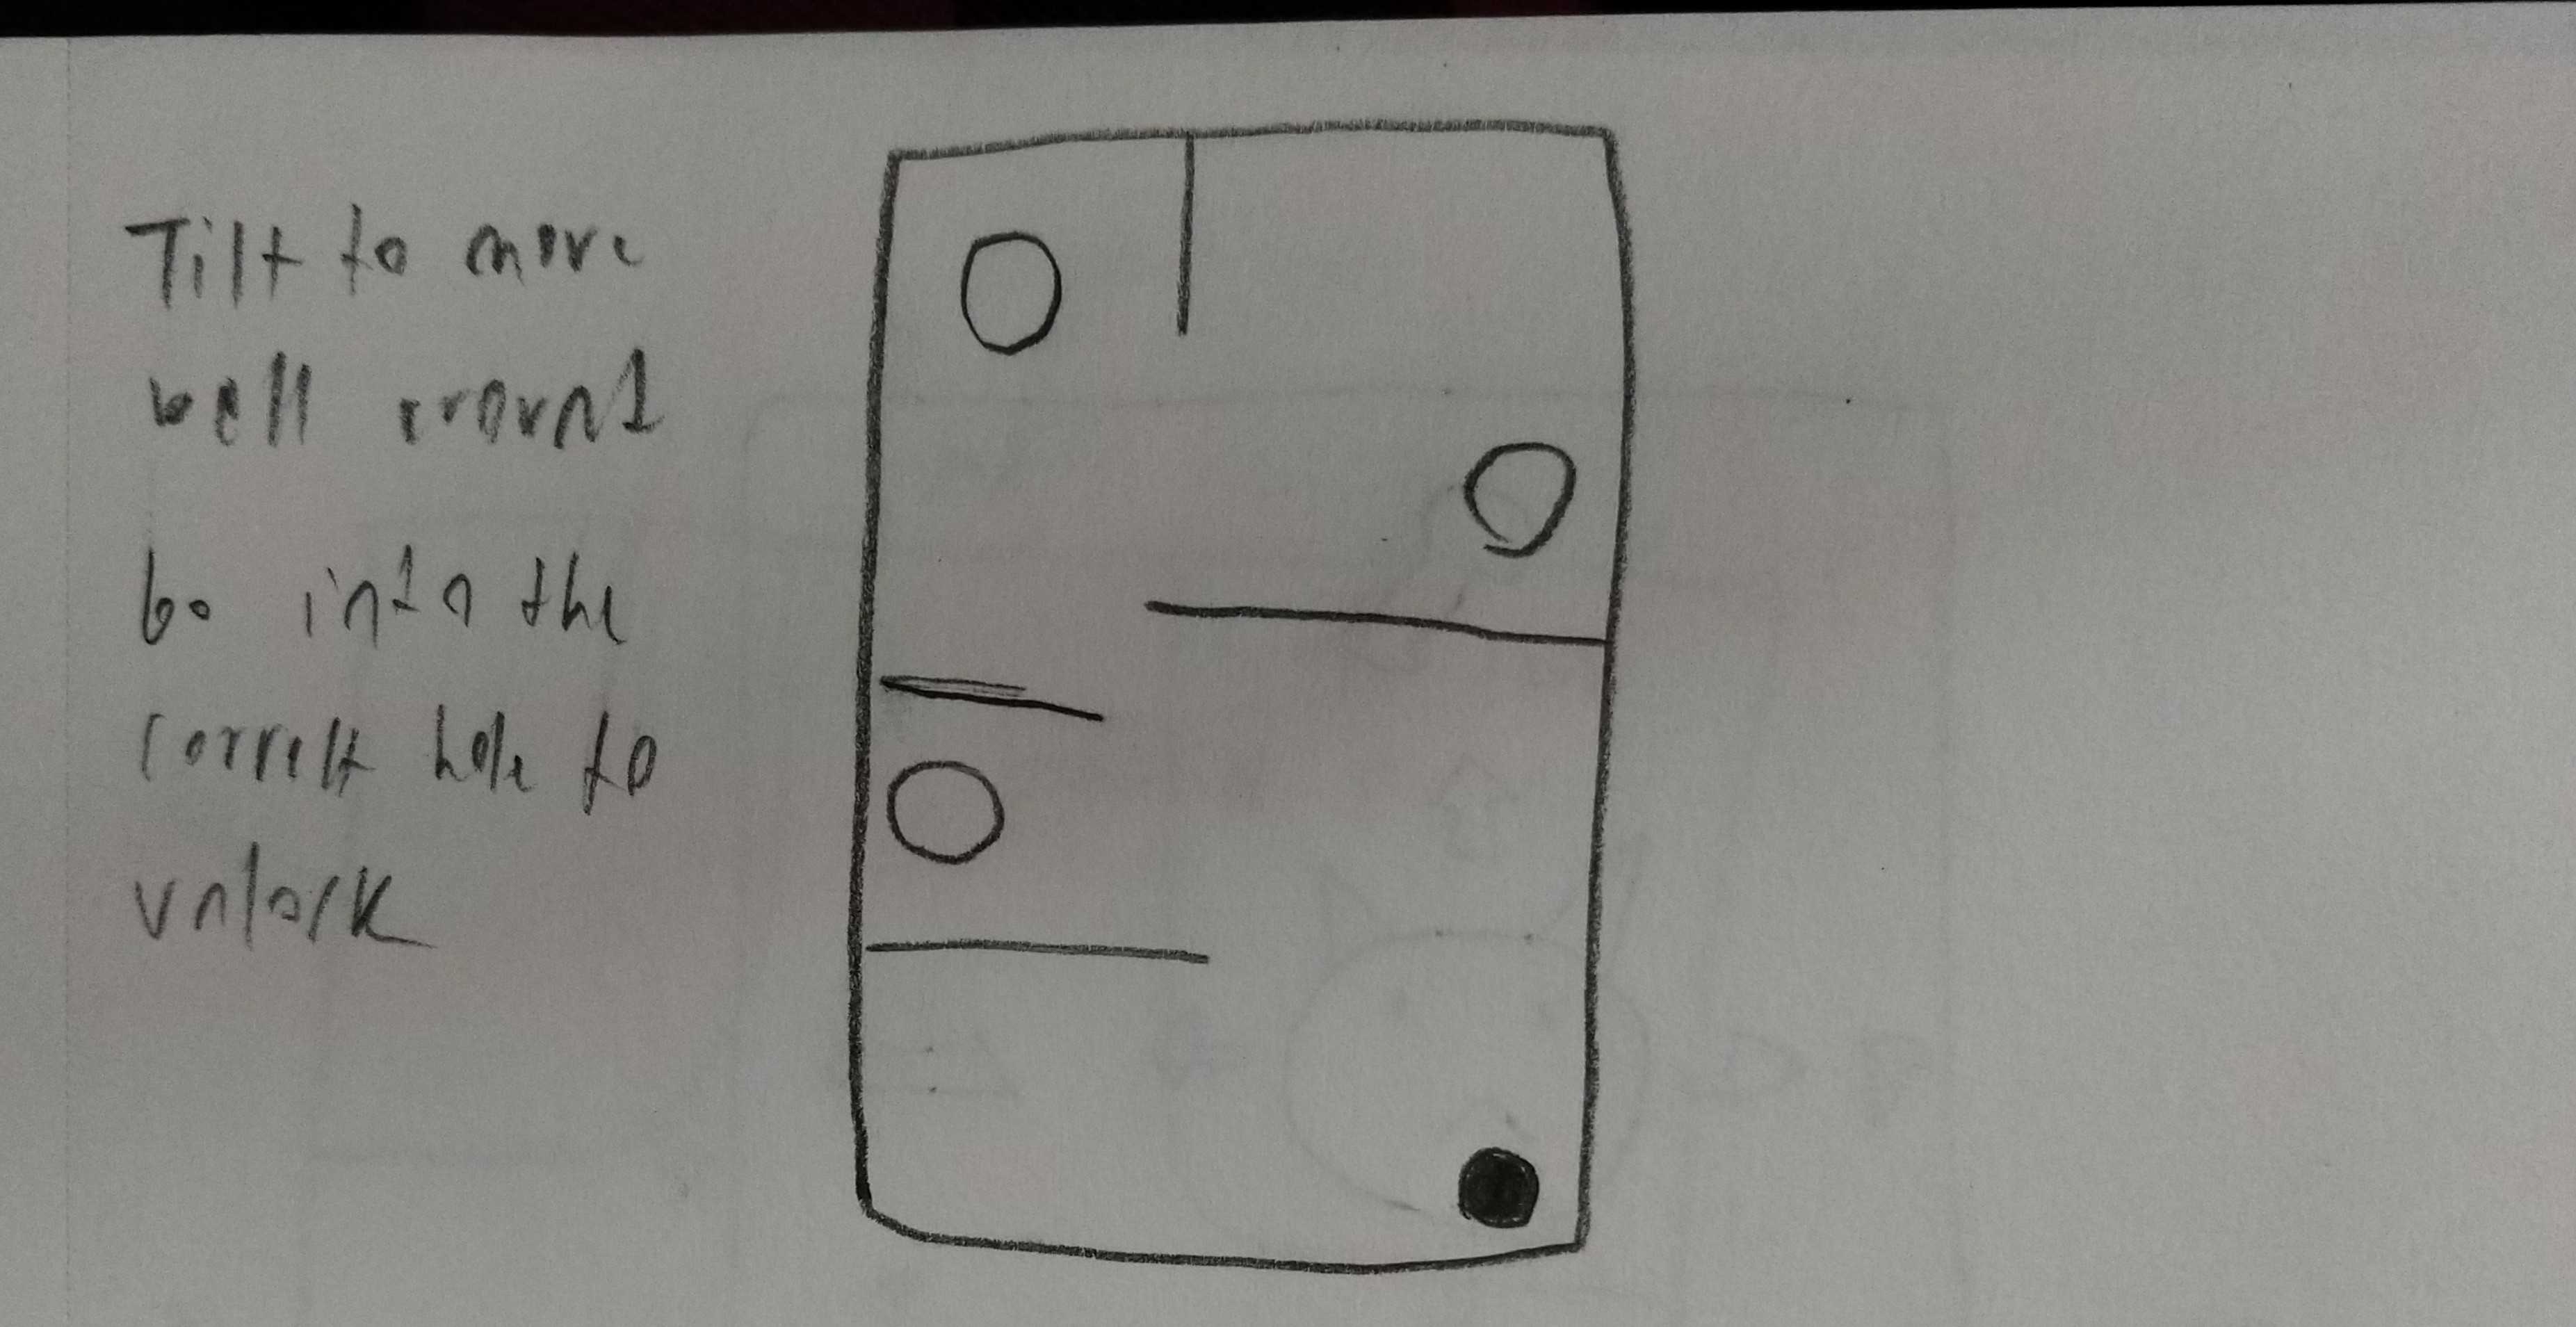 Tilt to move
ball around
Go into the
correct hole to
unlock